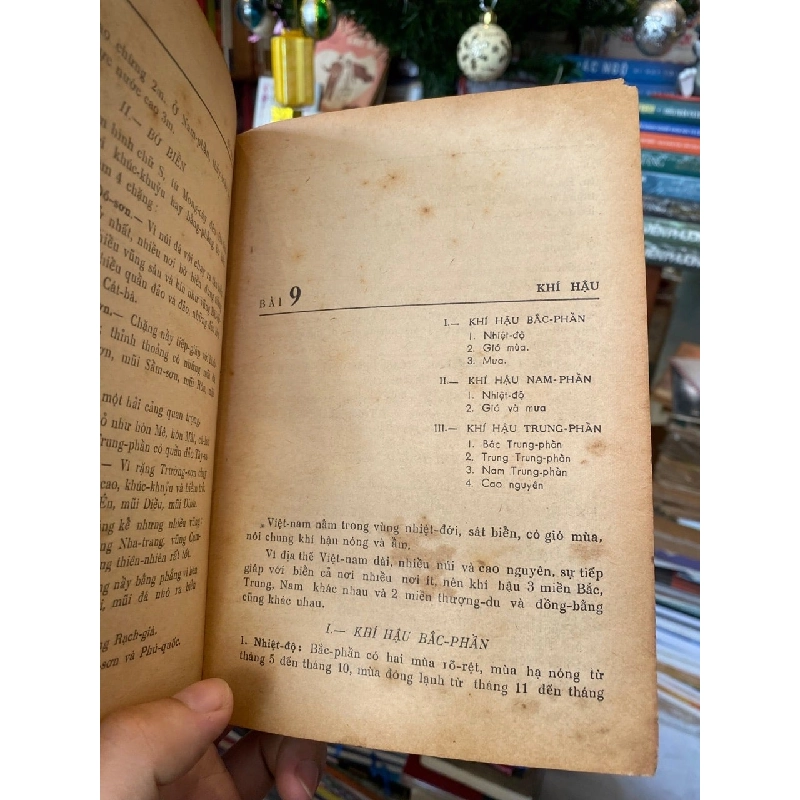 chừng 2m, ở Nam-phần
nước cao 3m.
II.— BỜ BIỂN
hình chữ S, từ Mong-cáy đến
khúc-khuỷu hay bằng-phẳng
4 chặng:
sơn.— Vì núi đá vôi chạy ra
nhất, nhiều nơi bờ biển dựng
vũng sâu và kín như vũng
quần đảo và đảo
Cát-bà.
Chặng này tiếp-giáp
thỉnh thoảng có
mũi Sầm-sơn, mũi
một hải cảng quan trọng
như hòn Mê, hòn Mắt,
Trung-phần có quần đảo
— Vì rặng Trường-sơn
cao, khúc-khuỷu và hiểm trở.
mũi Diều, mũi
kể nhưng nhiều vũng
Nha-trang, vũng Cam-
thiên-nhiên rất tốt.
nầy bằng phẳng và
mũi đá nhỏ ra biển
Rạch-giá.
và Phú-quốc.
BÀI 9 KHÍ HẬU
I.— KHÍ HẬU BẮC-PHẦN
1. Nhiệt-độ
2. Gió mùa.
3. Mưa.
II.— KHÍ HẬU NAM-PHẦN
1. Nhiệt-độ
2. Gió và mưa
III.— KHÍ HẬU TRUNG-PHẦN
1. Bắc Trung-phần
2. Trung Trung-phần
3. Nam Trung-phần
4. Cao nguyên
Việt-nam nằm trong vùng nhiệt-đới, sát biển, có gió mùa,
nói chung khí hậu nóng và ẩm.
Vì địa thế Việt-nam dài, nhiều núi và cao nguyên, sự tiếp
giáp với biển cả nơi nhiều nơi ít, nên khí hậu 3 miền Bắc,
Trung, Nam khác nhau và 2 miền thượng-du và đồng-bằng
cũng khác nhau.
I.— KHÍ HẬU BẮC-PHẦN
1. Nhiệt-độ: Bắc-phần có hai mùa rõ-rệt, mùa hạ nóng từ
tháng 5 đến tháng 10, mùa đông lạnh từ tháng 11 đến tháng